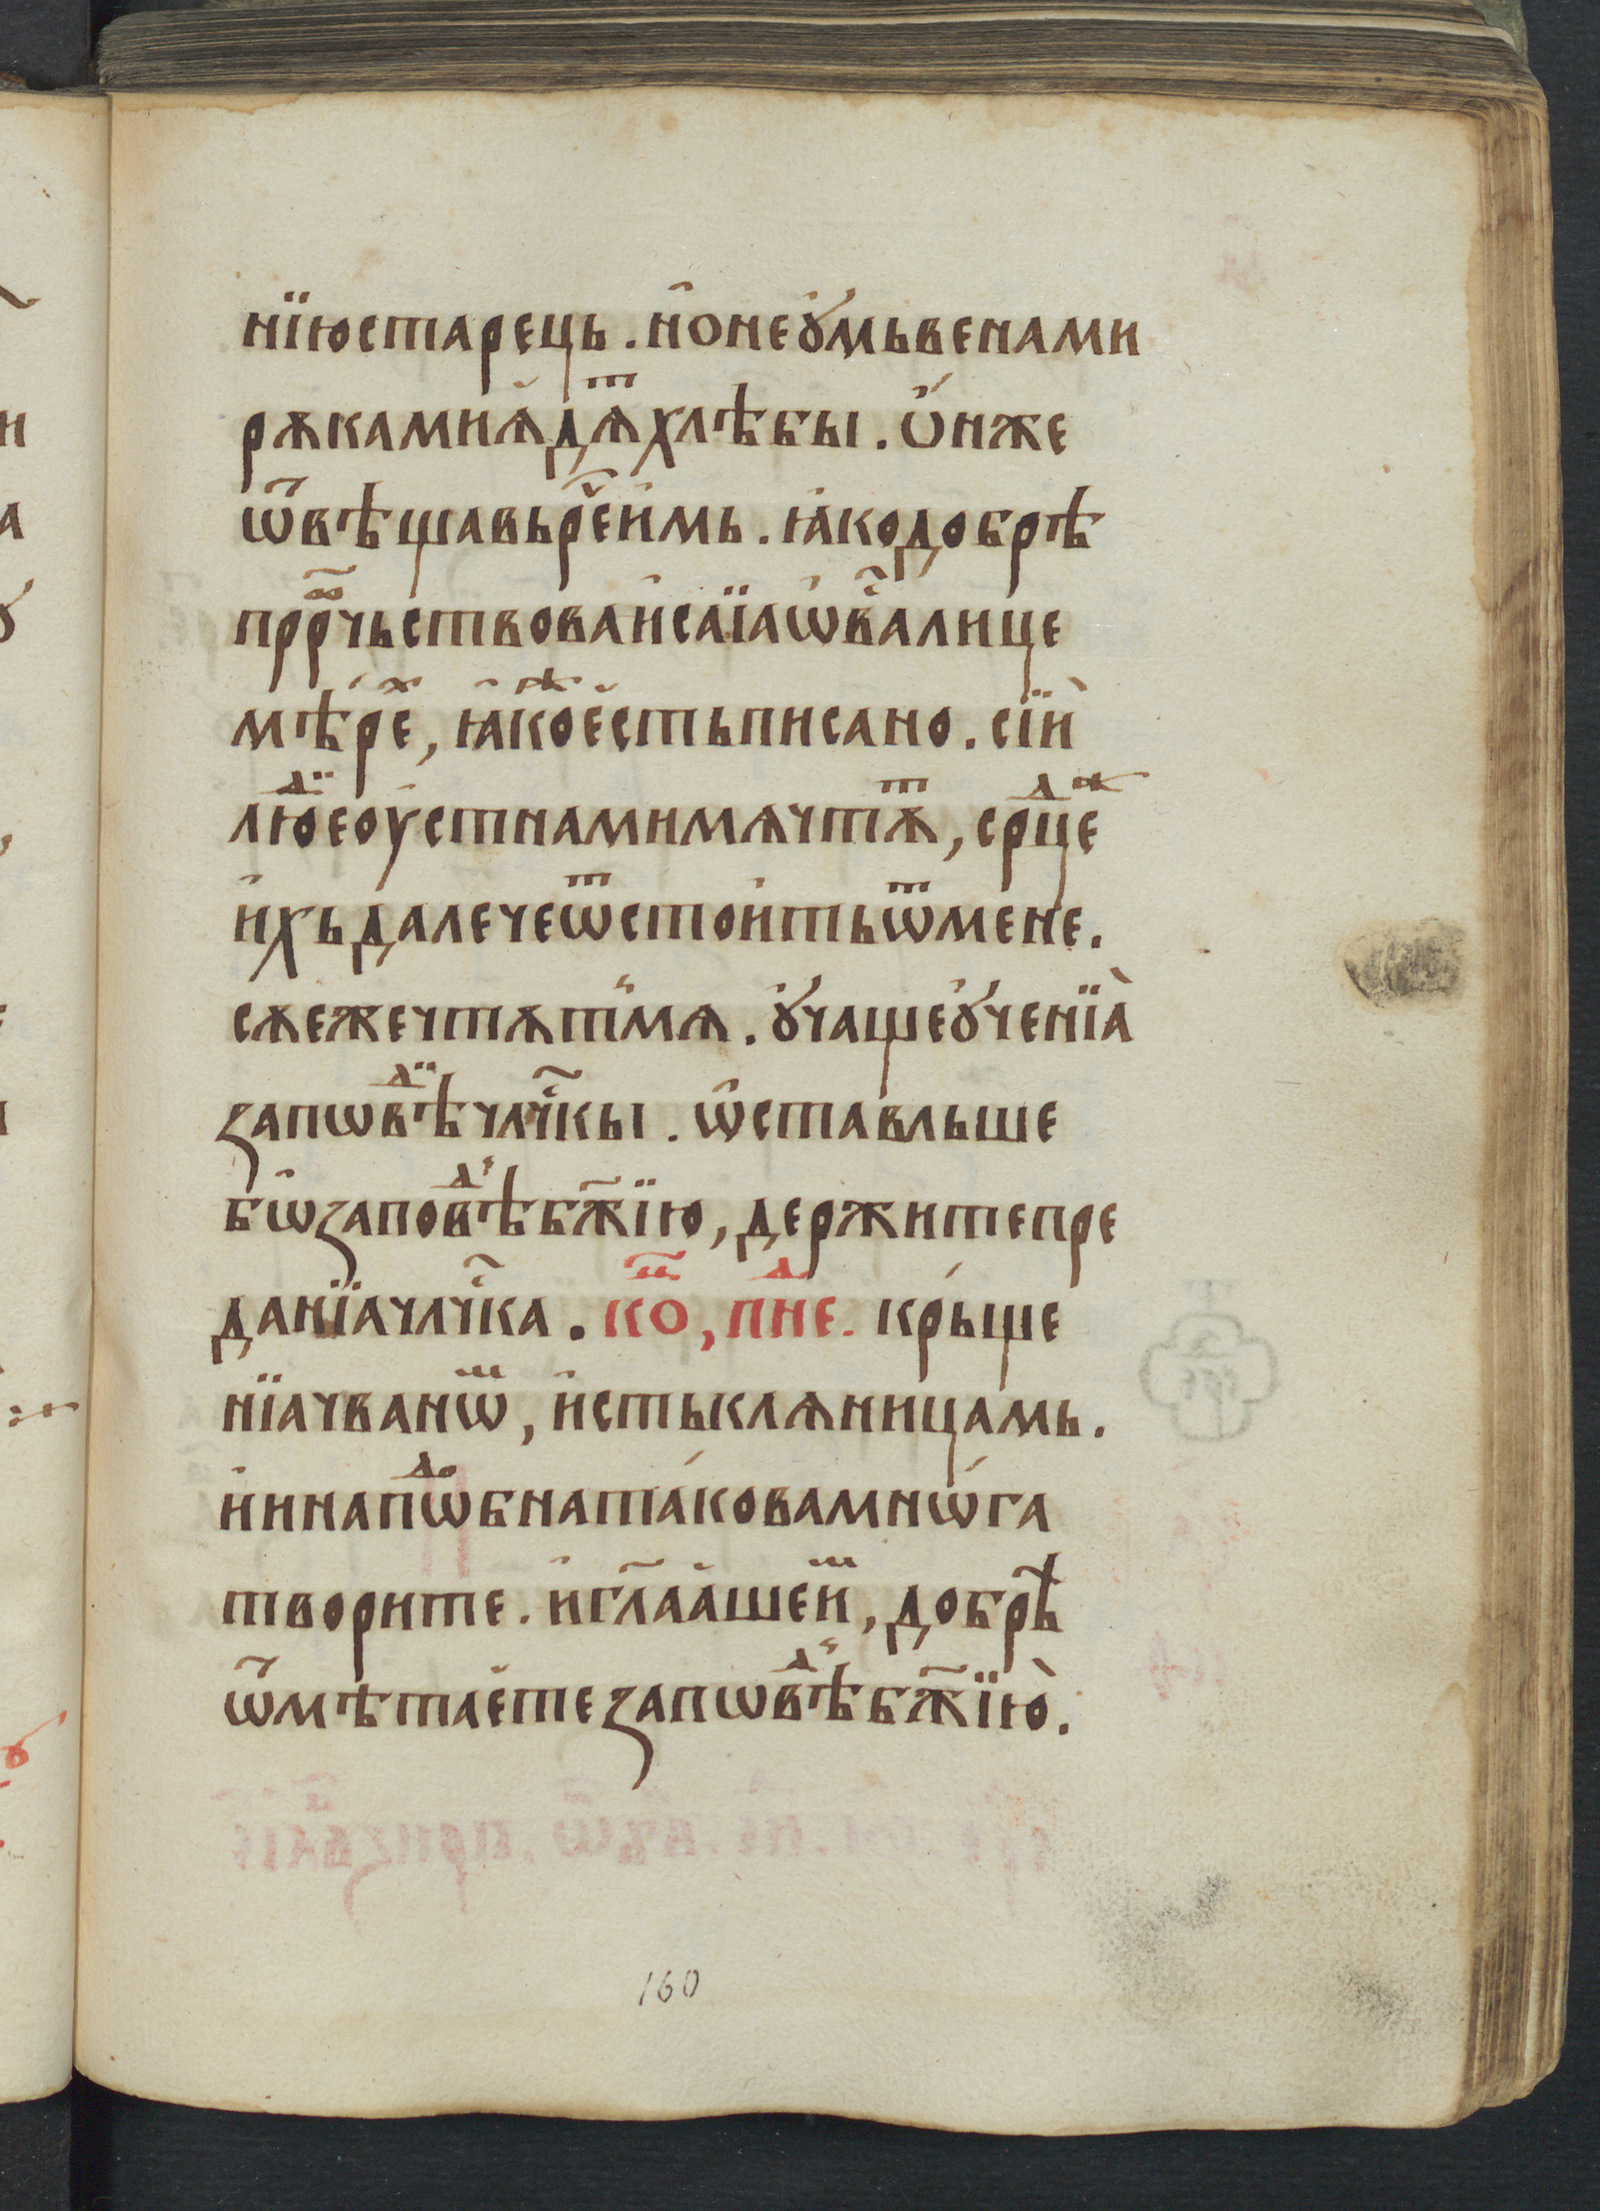 нїюстарець . н҆ѻнеꙋ҆мьвенами
рѫкамиꙗ҆дѧⷮ хлѣбы . ѻ҆́нже
ѿ҃вѣщавьре҃и҆мь . ꙗ҆кодобрѣ
прⷪ҇рчьствоваи҆саїаѡ҆ва҃лице
мѣ́рⷯе , ꙗ҆коⷤе҆стьписано . сїѝ
люⷣ́еоу҆стнамимѧчтѫⷮ , срⷣцеⷤ
и҆хъдалечеѿⷮстои҆тьѿⷮмене .
сѧежечтѧт̾мѧ . ꙋ҆́чащеꙋ҆́ченїа̀
ꙁапѡвѣⷣчл҃чкы . ѡ҆ставльше
бѡ҆ꙁаповѣⷣб҃жїю , держитепре
данїачл҃чка . коⷰ҇ , пнⷣе . кры́ще
нїачванѡⷨ , и҆стькланицамь .
и҆инапѡⷣбната́ковамнѡ́га
творите . и҆гл҃аа҆шеи҆ⷨ , добрѣ
ѿ҃мѣтае҆теꙁапѡвѣⷣб҃жїю̀ .
160